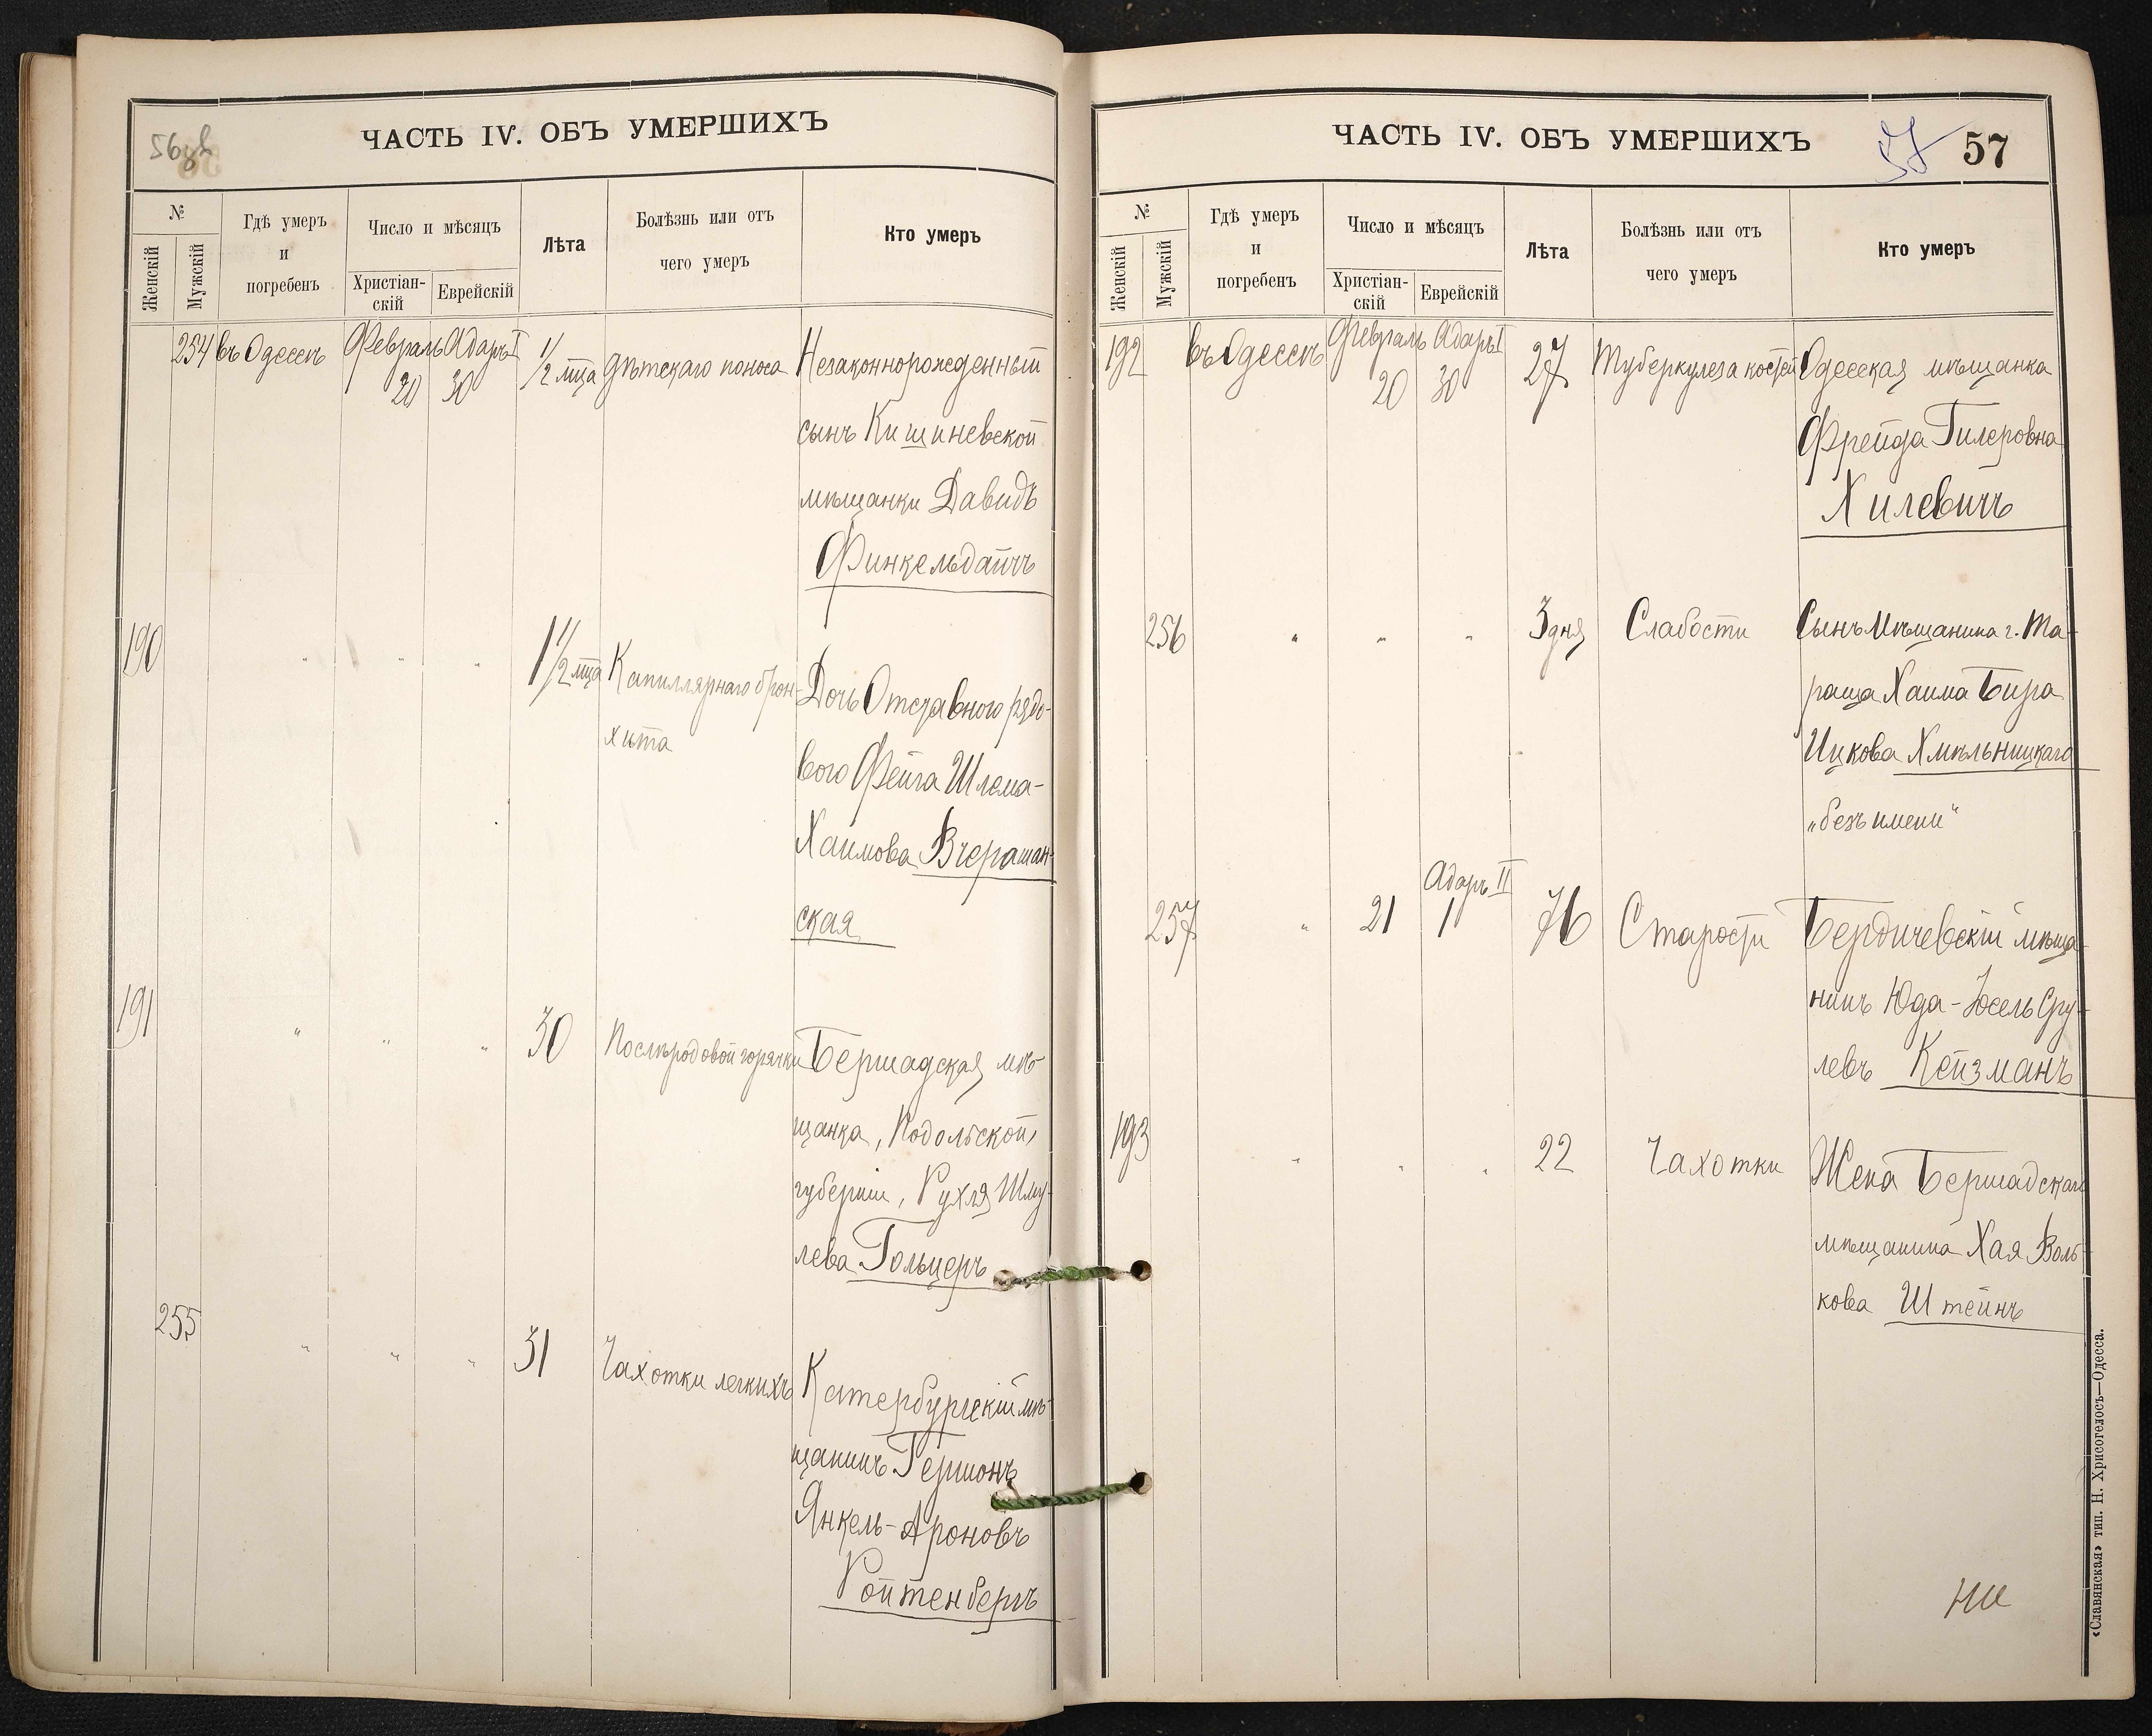 56об
ЧАСТЬ IV. ОБЪ УМЕРШИХЪ
№
Женскій
Мужскій
Гдѣ умеръ
и
погребенъ
Число и мѣсяцъ
Христіан-
скій
Еврейскій
Лѣта
Болѣзнь или отъ
чего умеръ
Кто умеръ
254 въ Одессѣ Февраль Адаръ I 1/2 мца дѣтскаго поноса Незаконнорожденный
20 30
сынъ Кишиневской
мѣщанки Давидъ
Финкельдаичъ
190 " " " 1 1/2 мца Капиллярнаго брон-
хита
Дочь Отставного рядо-
вого Фейга Шлема-
Хаимова Вчерашан-
ская
191 " " " 30 Послѣродовой горячки Бершадская мѣ-
щанка, Подольской
губерніи, Рухля Шму-
лева Гольцеръ
255 " " " 31 Чахотки легкихъ Катербургскій мѣ-
щанинъ Гершонъ
Янкель-Ароновъ
Ройтенбергъ
ЧАСТЬ IV. ОБЪ УМЕРШИХЪ
57 57
№
Женскій
Мужскій
Гдѣ умеръ
и
погребенъ
Число и мѣсяцъ
Христіан-
скій
Еврейскій
Лѣта
Болѣзнь или отъ
чего умеръ
Кто умеръ
192 въ Одессѣ Февраль Адаръ I 27 Туберкулеза костей Одесская мѣщанка
20 30
Фрейда Гилеровна
Хилевичъ
256 " " " 3 дня Слабости Сынъ Мѣщанина г. Ма-
раша Хаима Бира
Ицкова Хмѣльницкаго
„безъ имени“
Адаръ II
257 " 21 1 76 Старости Бердичевскій мѣща-
нинъ Юда-Іосель Сру-
левъ Кейзманъ
193 " " " 22 Чахотки Жена Бершадскаго
мѣщанина Хая Воль-
кова Штейнъ
«Славянская» тип. Н. Хрисогелосъ—Одесса.